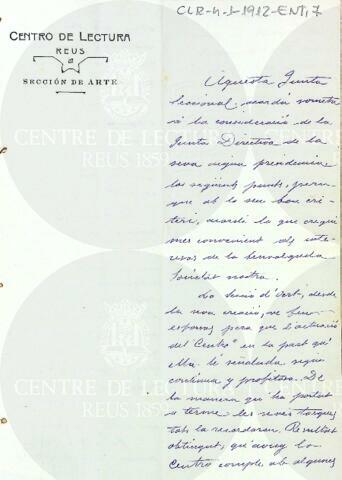 CLR-4-1-1912-ENT, 7
CENTRO DE LECTURA
REUS
SECCIÓN DE ARTE
Aquesta Junta
seccional acordá sometre
á la consideració de la
Junta Directiva de la
seva digna presidencia
los següents punts, perque
que ab lo seu bon cri-
teri, acordi lo que cregui
mes convenient als inte-
resos de la benvolguda
Societat nostra.
La Secció d'Art, desde
la seva creació, ve fent
esforços pera que l'actuació
del Centre en la part qu'á
ella li senyalada sigui
continua y profitosa. De
la manera que ha portat
á terme les seves tasques
tots la recordaran. Resultat
obtingut, qu'avuy lo
Centro compte ab algunes
CENTRE DE LECTURA
REUS 1859
CENTRE DE LECTURA
REUS 1859